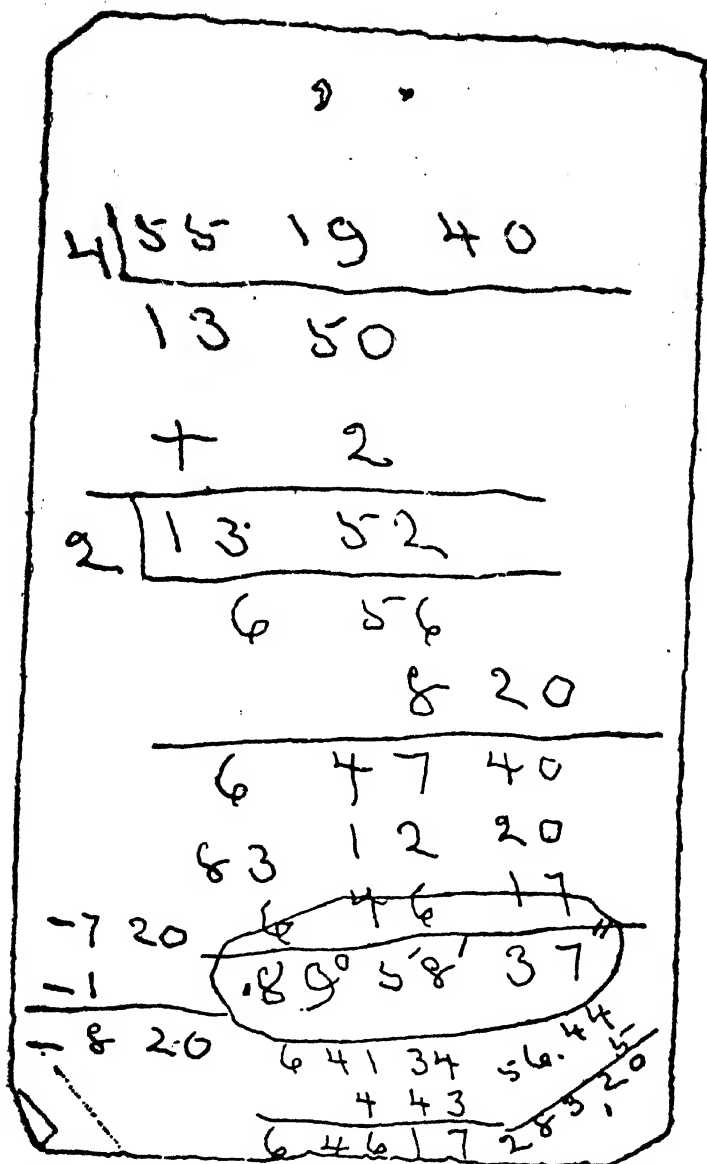 4 55 19 40
13 50
+ 2
2 13 52
6 56
8 20
6 47 40
83 12 20
6 46 17
-7 20
-1
- 8 20
89° 58' 37"
6 41 34
4 43
6 46 17
56.44
5
283.20